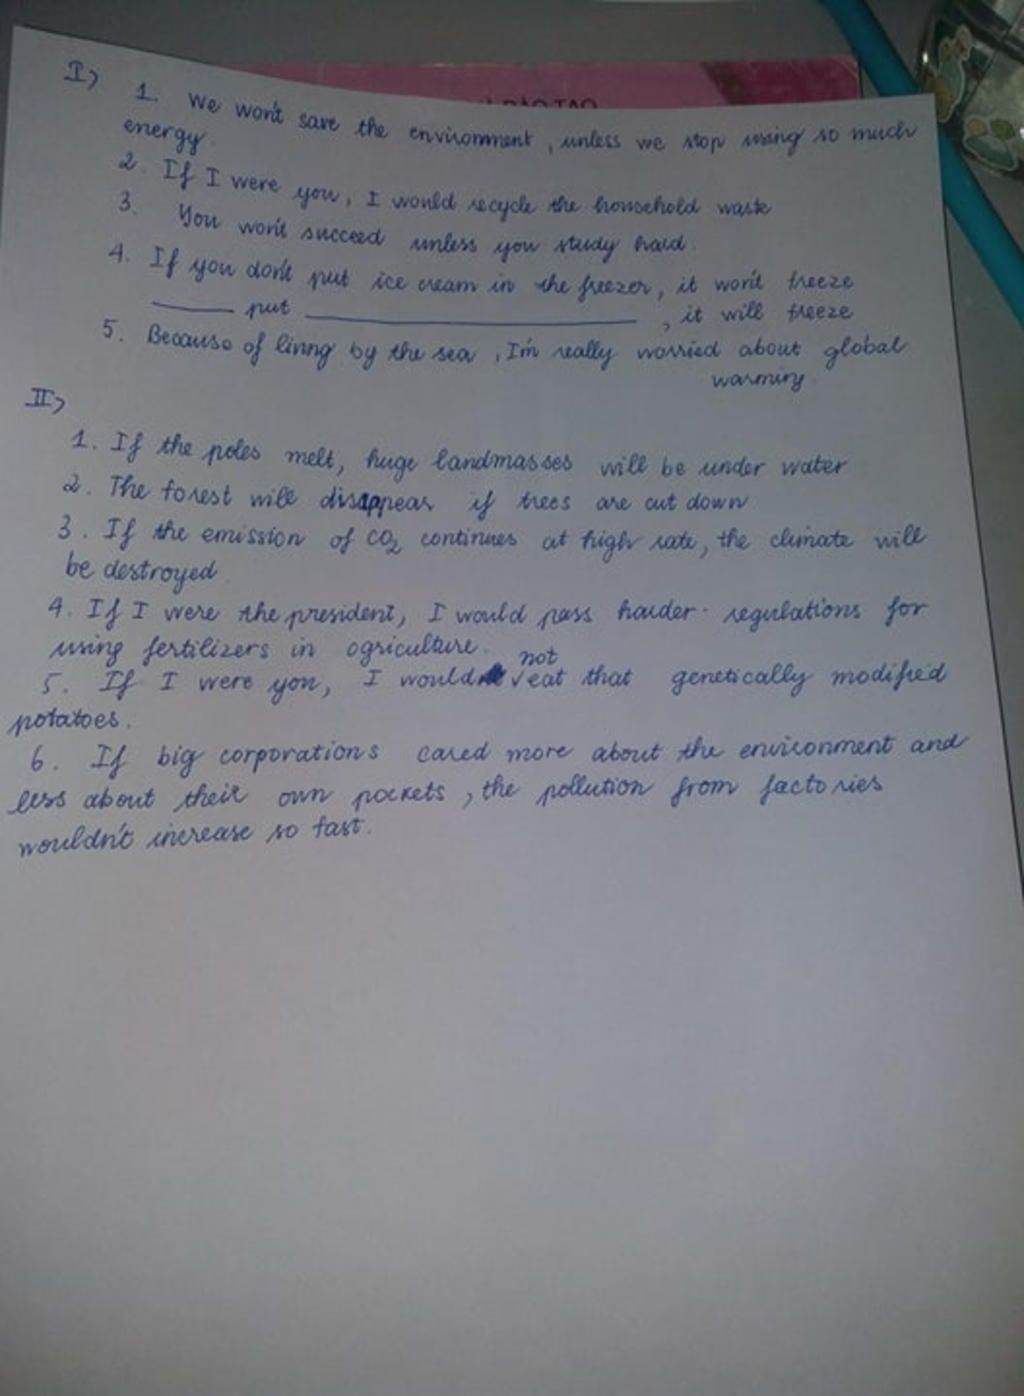 ĐÀO TẠO
I) 1. We won't save the environment, unless we stop using so much
energy.
2. If I were you, I would recycle the household waste
3. You won't succeed unless you study hard.
4. If you don't put ice cream in the freezer, it won't freeze
put , it will freeze
5. Because of living by the sea, I'm really worried about global
warming.
II)
1. If the poles melt, huge landmasses will be under water
2. The forest will disappear if trees are cut down
3. If the emission of CO2 continues at high rate, the climate will
be destroyed.
4. If I were the president, I would pass harder regulations for
using fertilizers in agriculture.
not
5. If I were you, I would √eat that genetically modified
potatoes.
6. If big corporations cared more about the environment and
less about their own pockets, the pollution from factories
wouldn't increase so fast.